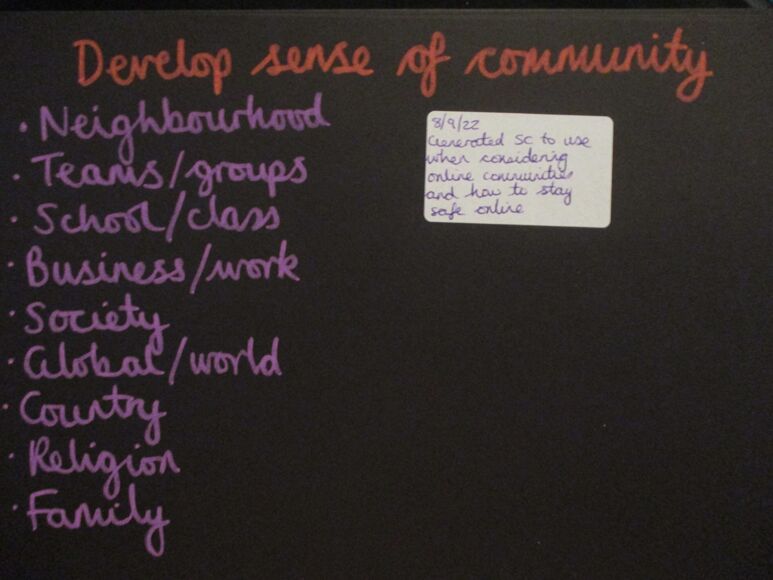 Develop sense of community
· Neighbourhood
· Teams/groups
· School/class
· Business/work
· Society
· Global/world
· Country
· Religion
· Family
8/9/22
Generated SC to use
when considering
online communities
and how to stay
safe online